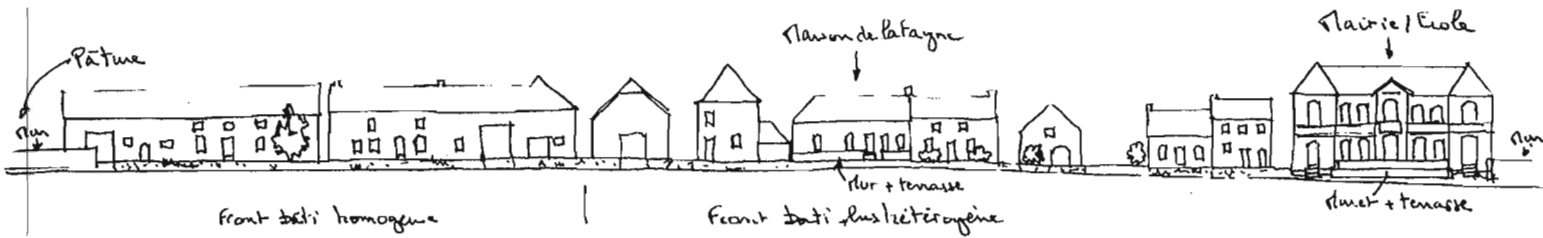 Pâture
Mur
Maison de la fagne
Mairie / École
Mur
Mur + terrasse
Muret + terrasse
Front bâti homogène
Front bâti plus hétérogène